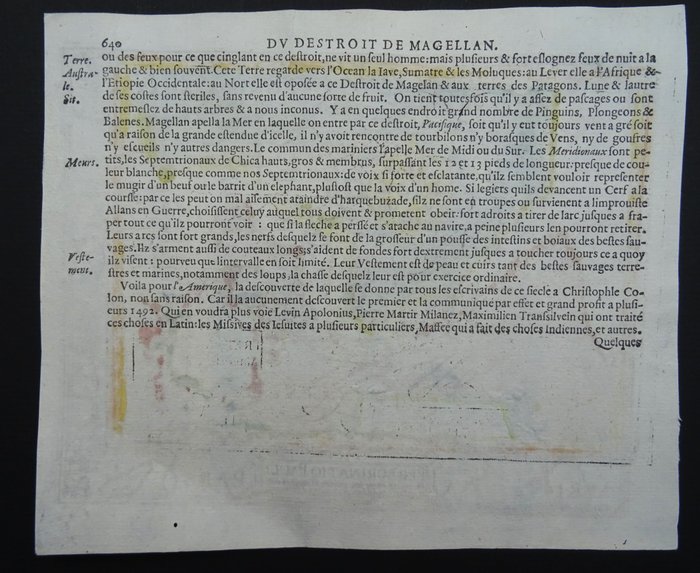 640
DV DESTROIT DE MAGELLAN.
Terre.
Austra-
le.
Sit.
Meurs.
Veste-
mens.
ou des feux pour ce que cinglant en ce destroit, ne vit un seul homme: mais plusieurs & fort eslognez feux de nuit a la
gauche & bien souvent. Cete Terre regarde vers l'Ocean la Iave, Sumatre & les Moluques: au Lever elle a l'Afrique &
l'Etiopie Occidentale: au Nort elle est oposée a ce Destroit de Magelan & aux terres des Patagons. Lune & lautre
de ses costes sont steriles, sans revenu d'aucune sorte de fruit. On tient toutesfois qu'il y a assez de pascages ou sont
entremeslez de hauts arbres & a nous inconus. Y a en quelques endroit grand nombre de Pinguins, Plongeons &
Balenes. Magelan apella la Mer en laquelle on entre par ce destroit, Pacifique, soit qu'il y eut toujours vent a gré soit
qu'a raison de la grande estendue d'icelle, il n'y avoit rencontre de tourbilons n'y borasques de Vens, ny de goufres
n'y escueils n'y autres dangers. Le commun des mariniers l'apelle Mer de Midi ou du Sur. Les Meridionaux sont pe-
tits, les Septemtrionaux de Chica hauts, gros & membrus, surpassant les 12 et 13 pieds de longueur: presque de cou-
leur blanche, presque comme nos Septemtrionaux: de voix si forte et esclatante, qu'ilz semblent vouloir representer
le mugir d'un beuf ou le barrit d'un elephant, plustost que la voix d'un home. Si legiers quils devancent un Cerf a la
course: par ce les peut on mal aisement ataindre d'harquebuzade, silz ne sont en troupes ou survenient a limprouiste
Allans en Guerre, choisissent celuy auquel tous doivent & prometent obeir: fort adroits a tirer de larc jusques a fra-
per tout ce qu'ilz pourront voir : que si la fleche a persse et s'atache au navire, a peine plusieurs len pourront retirer.
Leurs arcs sont fort grands, les nerfs desquelz se font de la grosseur d'un pousse des intestins et boiaux des bestes sau-
vages. Ilz s'arment aussi de couteaux longs; s'aident de fondes fort dextrement jusques a toucher toujours ce a quoy
ilz visent: pourveu que lintervalle en soit limité. Leur Vestement est de peau et cuirs tant des bestes sauvages terre-
stres et marines, notamment des loups, la chasse desquelz leur est pour exercice ordinaire.
Voila pour l'Amerique, la descouverte de laquelle se donne par tous les escrivains de ce siecle a Christophle Co-
lon, non sans raison. Car il la aucunement descouvert le premier et la communiqué par effet et grand profit a plusi-
eurs 1492. Qui en voudra plus voie Levin Apolonius, Pierre Martir Milanez, Maximilien Transsilvein qui ont traité
ces choses en Latin: les Missives des Iesuites a plusieurs particuliers, Maffee qui a fait des choses Indiennes, et autres.
Quelques